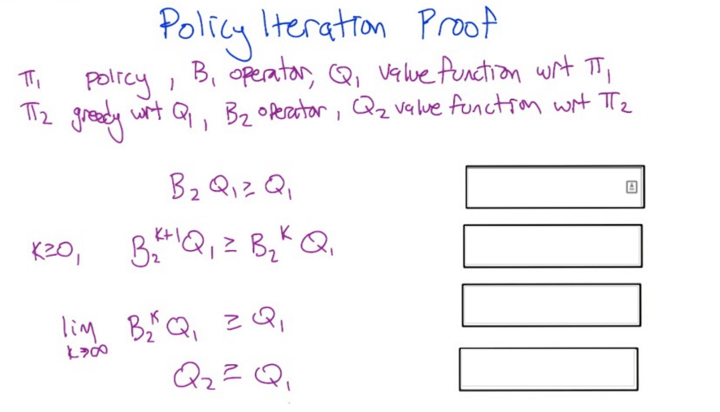 Policy Iteration Proof
π₁ policy, B₁ operator, Q₁ value function wrt π₁
π₂ greedy wrt Q₁, B₂ operator, Q₂ value function wrt π₂
B₂ Q₁ ≥ Q₁
K≥0, B₂ᴷ⁺¹Q₁ ≥ B₂ᴷ Q₁
lim K→∞ B₂ᴷ Q₁ ≥ Q₁
Q₂ ≥ Q₁